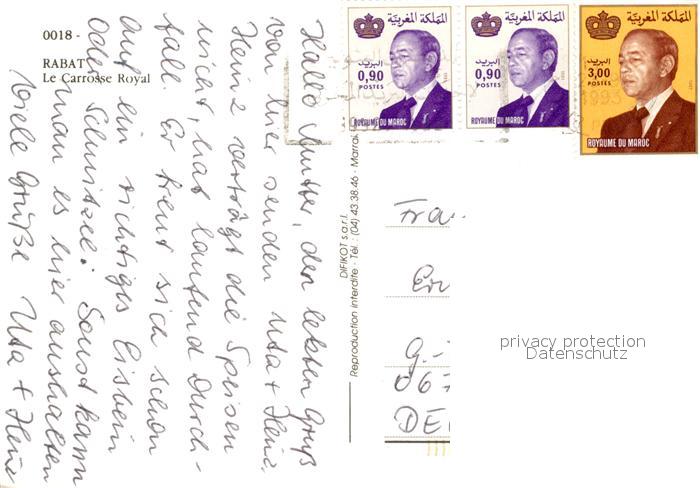 0018 -
RABAT
Le Carrosse Royal
Hallo Mutter, den letzten Gruß
von hier senden Uta + Heinz.
Heinz verträgt die Speisen
nicht, hat laufend Durch-
fall. Er freut sich schon
auf ein richtiges Eisbein
oder Schnitzel. Sonst kann
man es hier aushalten
Viele Grüße Uta + Heinz
DIFIKOT s.a.r.l.
Reproduction interdite - Tél.: (04) 43.38.46 - Marra
المملكة المغربية
البريد
0,90
POSTES
ROYAUME DU MAROC
المملكة المغربية
البريد
0,90
POSTES
ROYAUME DU MAROC
المملكة المغربية
البريد
3,00
POSTES
ROYAUME DU MAROC
1993
Fra
G.-
067
DE
privacy protection
Datenschutz